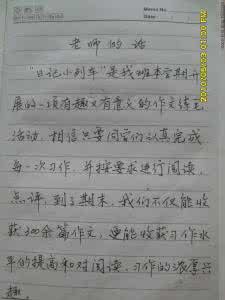 Memo No.
Date
老师的话
“日记小列车”是我班本学期开
展的一项有趣又有意义的作文练笔
活动，相信只要同学们认真完成
每一次习作，并按要求进行阅读，
点评，到了期末，我们不仅能收
获300余篇作文，更能收获习作水
平的提高和对阅读、习作的浓厚兴
趣。